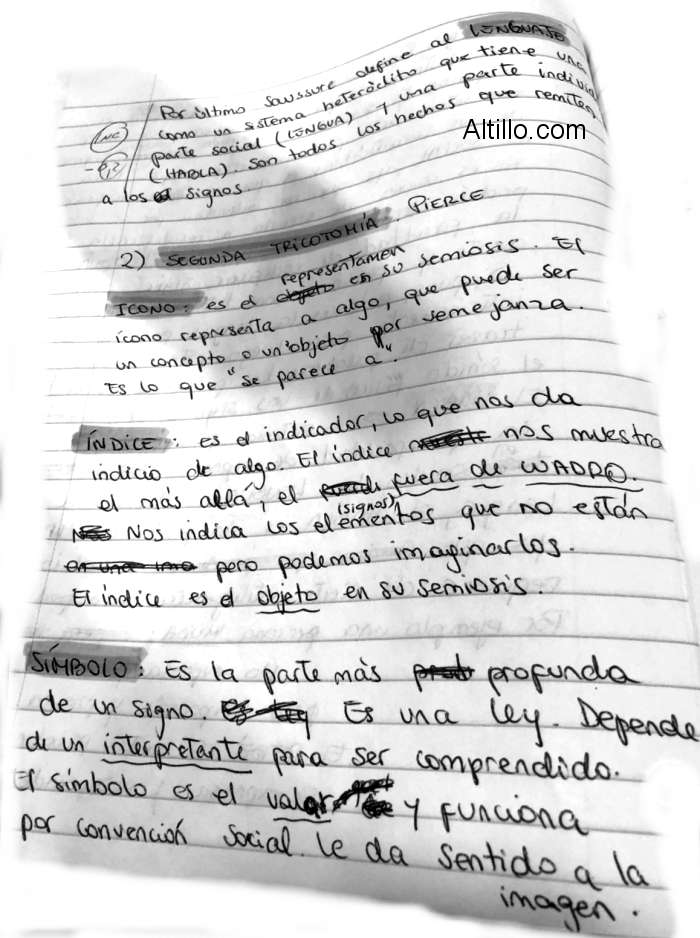 Por último Saussure define al LENGUAJE
como un sistema heteróclito que tiene una
parte social (LENGUA) y una parte individual
(HABLA). Son todos los hechos que remiten
a los signos
INC
Altillo.com
2) SEGUNDA TRICOTOMÍA. PIERCE
ICONO: es el representamen en su semiosis. El
ícono representa a algo, que puede ser
un concepto o un objeto por semejanza.
Es lo que "se parece a".
ÍNDICE: es el indicador, lo que nos da
indicio de algo. El índice nos muestra
el más allá, el fuera de WADRO.
Nos indica los elementos (signos) que no están
pero podemos imaginarlos.
El índice es el objeto en su semiosis.
SÍMBOLO: Es la parte más profunda
de un signo. Es una ley. Depende
de un interpretante para ser comprendido.
El símbolo es el valor y funciona
por convención social. Le da sentido a la
imagen.